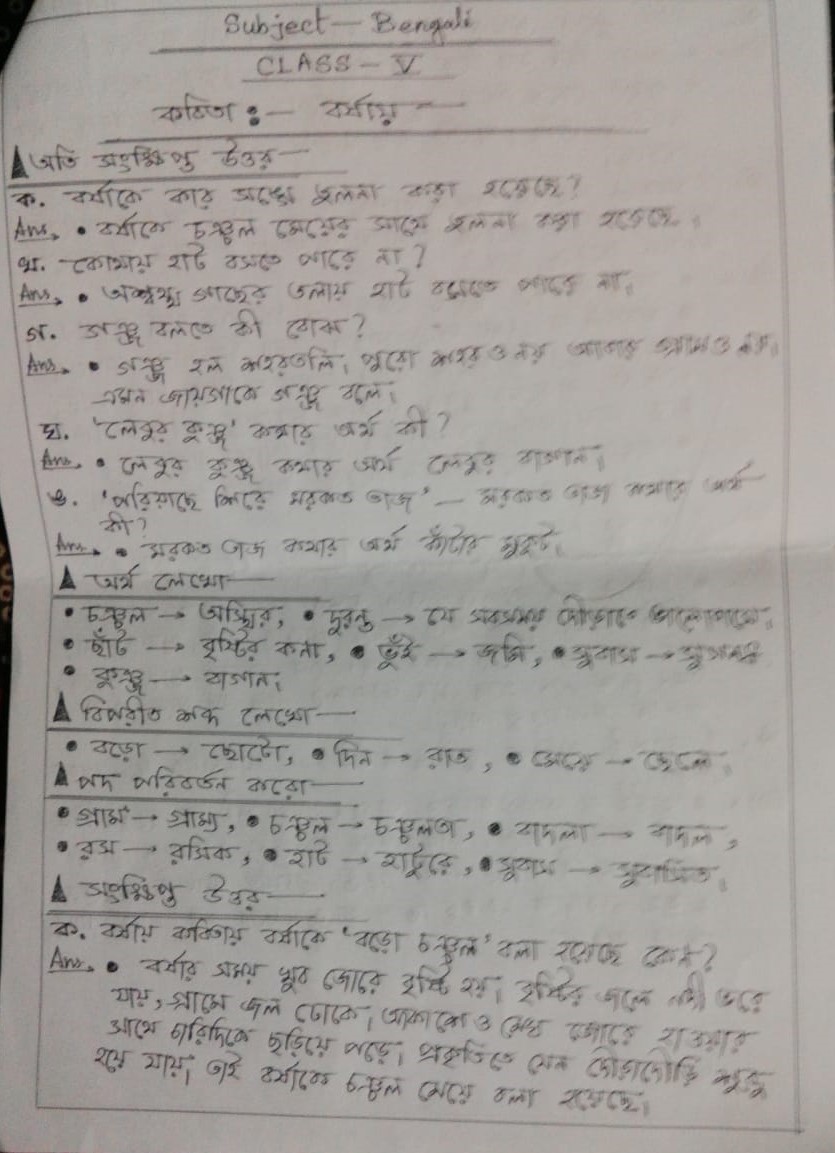 Subject — Bengali
CLASS – V
কবিতা :— বর্ষায় —
অতি সংক্ষিপ্ত উত্তর —
ক. বর্ষাকে কার সঙ্গে তুলনা করা হয়েছে?
Ans. • বর্ষাকে চঞ্চল মেয়ের সাথে তুলনা করা হয়েছে।
খ. কোথায় হাট বসতে পারে না?
Ans. • অশ্বত্থ গাছের তলায় হাট বসতে পারে না।
গ. গঞ্জ বলতে কী বোঝ?
Ans. • গঞ্জ হল শহরতলি। পুরো শহরও নয় আবার গ্রামও নয়।
এমন জায়গাকে গঞ্জ বলে।
ঘ. 'লেবুর কুঞ্জ' কথার অর্থ কী?
Ans. • লেবুর কুঞ্জ কথার অর্থ লেবুর বাগান।
ঙ. 'পরিয়াছে শিরে মরকত তাজ' — মরকত তাজ কথার অর্থ
কী?
Ans. • মরকত তাজ কথার অর্থ কাঁটার মুকুট।
অর্থ লেখো —
• চঞ্চল → অস্থির, • দুরন্ত → যে সবসময় দৌড়াতে ভালোবাসে।
• ছাঁট → বৃষ্টির কনা, • ভুঁই → জমি, • সুবাস → সুগন্ধ
• কুঞ্জ → বাগান।
বিপরীত শব্দ লেখো —
• বড়ো → ছোটো, • দিন → রাত, • মেয়ে → ছেলে।
পদ পরিবর্তন করো —
• গ্রাম → গ্রাম্য, • চঞ্চল → চঞ্চলতা, • বাদলা → বাদল,
• রস → রসিক, • হাট → হাটুরে, • সুবাস → সুবাসিত।
সংক্ষিপ্ত উত্তর —
ক. বর্ষায় কবিতায় বর্ষাকে 'বড়ো চঞ্চল' বলা হয়েছে কেন?
Ans. • বর্ষার সময় খুব জোরে বৃষ্টি হয়। বৃষ্টির জলে নদী ভরে
যায়, গ্রামে জল ঢোকে। আকাশেও মেঘ জোরে হাওয়ার
সাথে চারিদিকে ছড়িয়ে পড়ে। প্রকৃতিতে যেন দৌড়াদৌড়ি শুরু
হয়ে যায়। তাই বর্ষাকে চঞ্চল মেয়ে বলা হয়েছে।